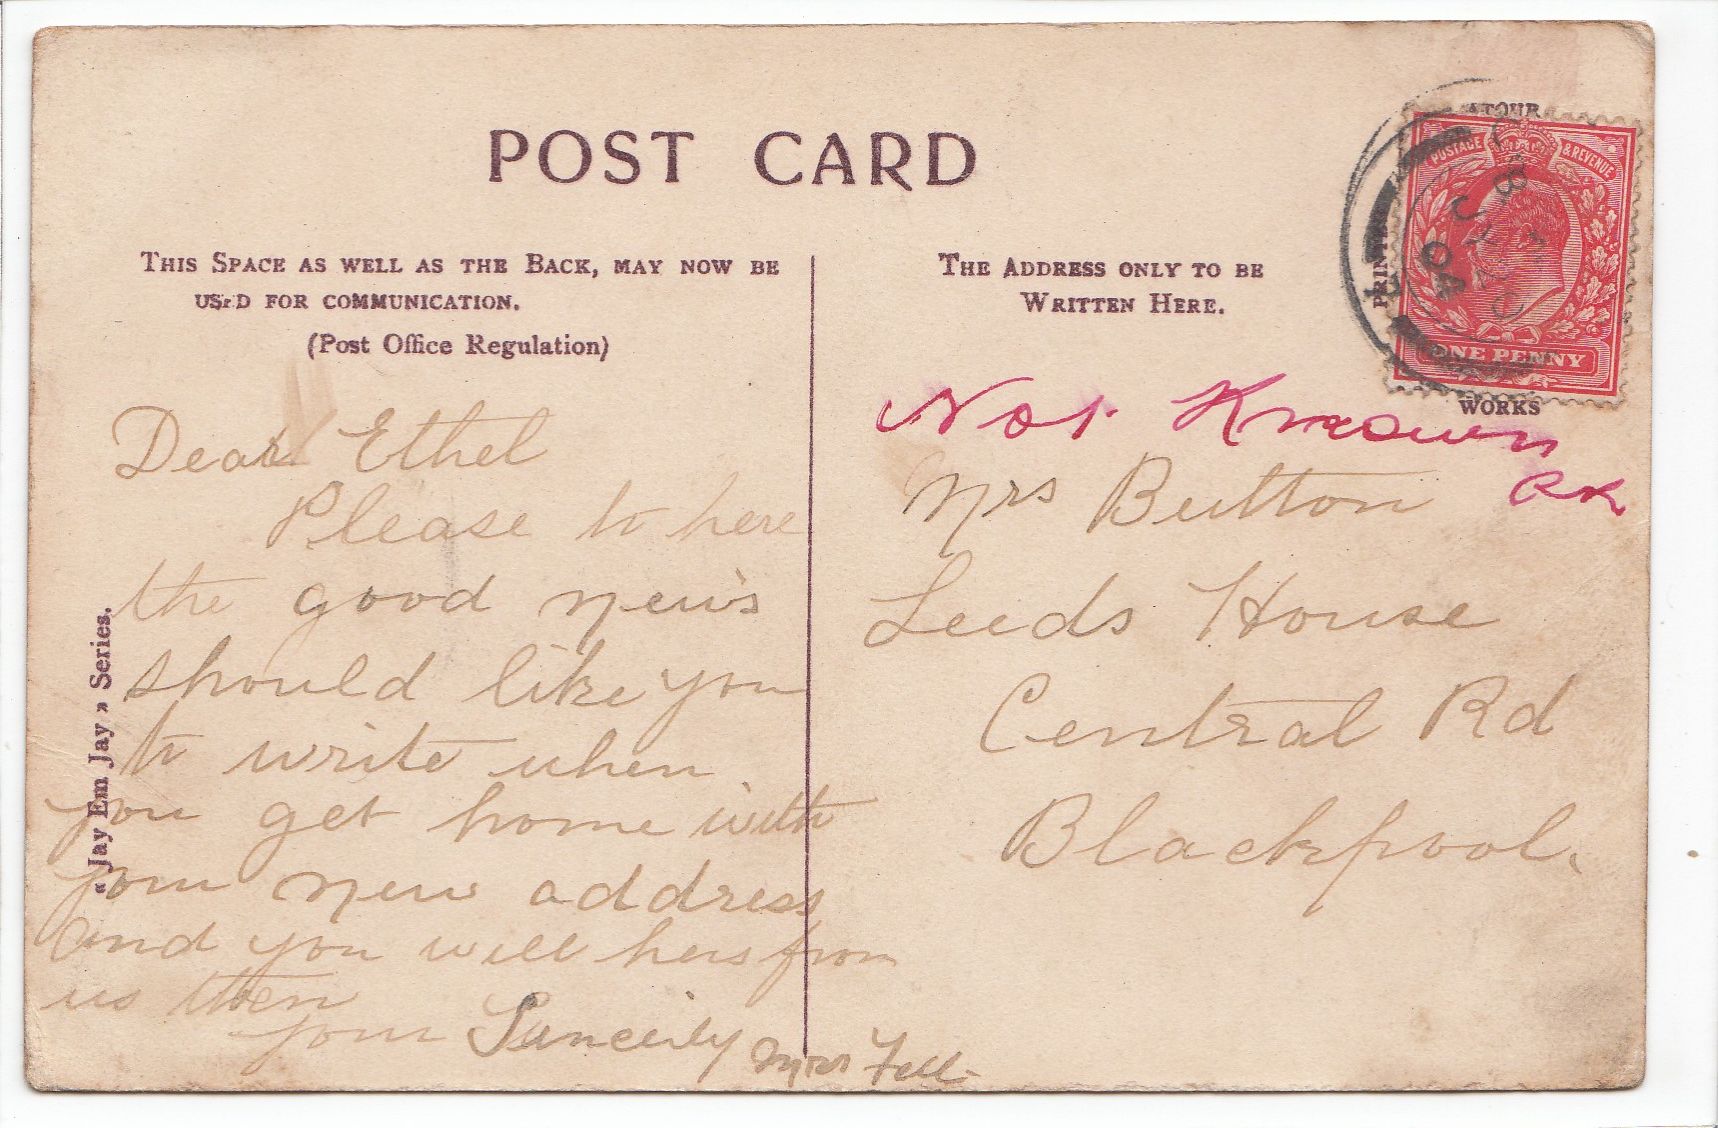 POST CARD
THIS SPACE AS WELL AS THE BACK, MAY NOW BE
USED FOR COMMUNICATION.
(Post Office Regulation)
THE ADDRESS ONLY TO BE
WRITTEN HERE.
PRINTED
AT OUR
WORKS
POSTAGE & REVENUE
ONE PENNY
JY
04
"Jay Em Jay" Series.
Dear Ethel
Please to here
the good news
should like you
to write when
you get home with
your new address
and you will hers from
us then
your Sincerly Mrs Fell
Not Known
Mrs Button
Leeds House
Central Rd
Blackpool.